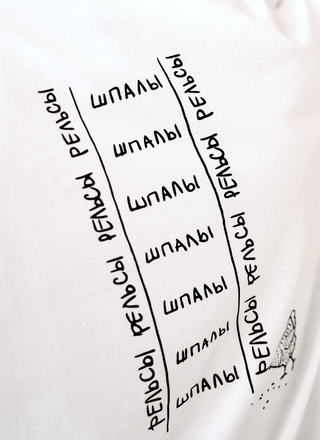 РЕЛЬСЫ РЕЛЬСЫ РЕЛЬСЫ РЕЛЬСЫ
ШПАЛЫ
ШПАЛЫ
ШПАЛЫ
ШПАЛЫ
ШПАЛЫ
ШПАЛЫ
ШПАЛЫ
РЕЛЬСЫ РЕЛЬСЫ РЕЛЬСЫ РЕЛЬСЫ